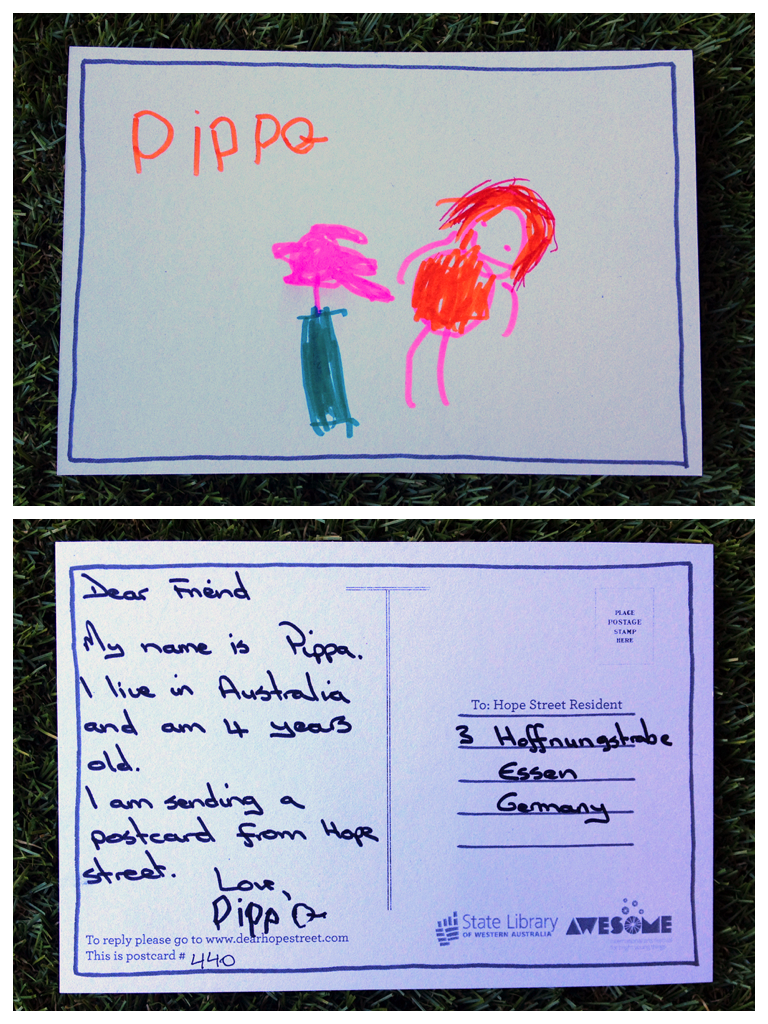 Pippa
Dear Friend
My name is Pippa.
I live in Australia
and am 4 years
old.
I am sending a
postcard from Hope
street.
Love,
Pippa
To reply please go to www.dearhopestreet.com
This is postcard # 440
PLACE
POSTAGE
STAMP
HERE
To: Hope Street Resident
3 Hoffnungstrabe
Essen
Germany
State Library
OF WESTERN AUSTRALIA
AWESOME